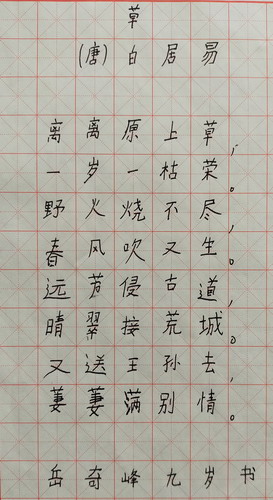 草
(唐)白居易
离离原上草,
一岁一枯荣。
野火烧不尽,
春风吹又生。
远芳侵古道,
晴翠接荒城。
又送王孙去,
萋萋满别情。
岳奇峰九岁书